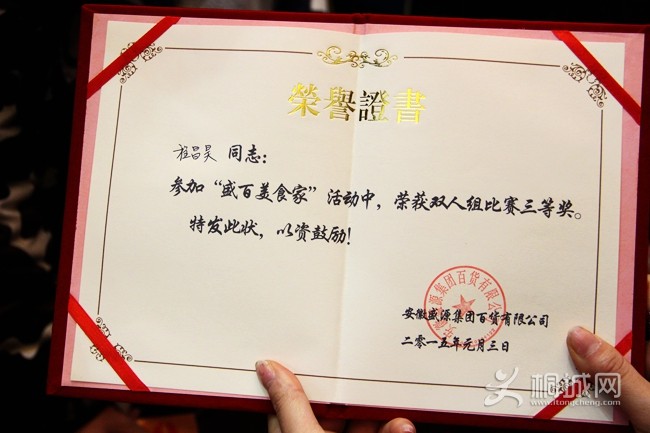 榮譽證書
程昌昊 同志：
参加“盛百美食家”活动中，荣获双人组比赛三等奖。
特发此状，以资鼓励！
安徽盛源集团百货有限公司
安徽盛源集团百货有限公司
二零一五年元月三日
桐城网
www.itongcheng.com